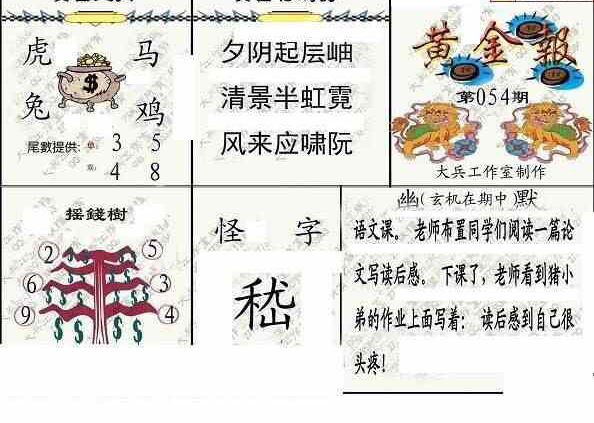 虎 马
兔 鸡
尾數提供: 单: 3 5
双: 4 8
夕阴起层岫
清景半虹霓
风来应啸阮
黄金報
第054期
大兵工作室制作
摇錢樹
2 5
6 3
9 4
怪 字
嵇
幽(玄机在期中)默
语文课。老师布置同学们阅读一篇论
文写读后感。下课了，老师看到猪小
弟的作业上面写着： 读后感到自己很
头疼！